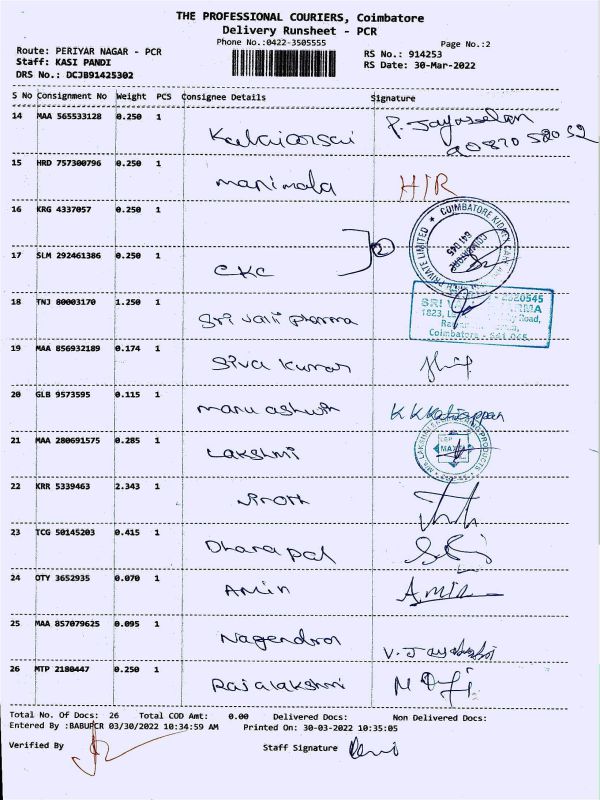 THE PROFESSIONAL COURIERS, Coimbatore
Delivery Runsheet - PCR
Phone No.:0422-3505555
Page No.:2
Route: PERIYAR NAGAR - PCR
RS No.: 914253
Staff: KASI PANDI
RS Date: 30-Mar-2022
DRS No.: DCJB91425302
S No Consignment No Weight PCS Consignee Details Signature
14 MAA 565533128 0.250 1 Kalaiarsai P. Jayaseelan
15 HRD 757300796 0.250 1 manimala H/R
16 KRG 4337057 0.250 1
COIMBATORE KIDNEY
PRIVATE LIMITED
COIMBATORE
641 045
17 SLM 292461386 0.250 1 CKC 2
18 TNJ 80003170 1.250 1 Sri Vari pharma
SRI
2520545
1823,
Road,
Coimbatore - 641 045.
19 MAA 856932189 0.174 1 Siva kumar
20 GLB 9573595 0.115 1 manu ashwin
21 MAA 280691575 0.285 1 Lakshmi
22 KRR 5339463 2.343 1
23 TCG 50145203 0.415 1 Dharapal
24 OTY 3652935 0.070 1 Amin Amin
25 MAA 857079625 0.095 1 Nagendran
26 MTP 2180447 0.250 1 Rajalakshmi
Total No. Of Docs: 26 Total COD Amt: 0.00 Delivered Docs: Non Delivered Docs:
Entered By :BABUPCR 03/30/2022 10:34:59 AM Printed On: 30-03-2022 10:35:05
Verified By Staff Signature